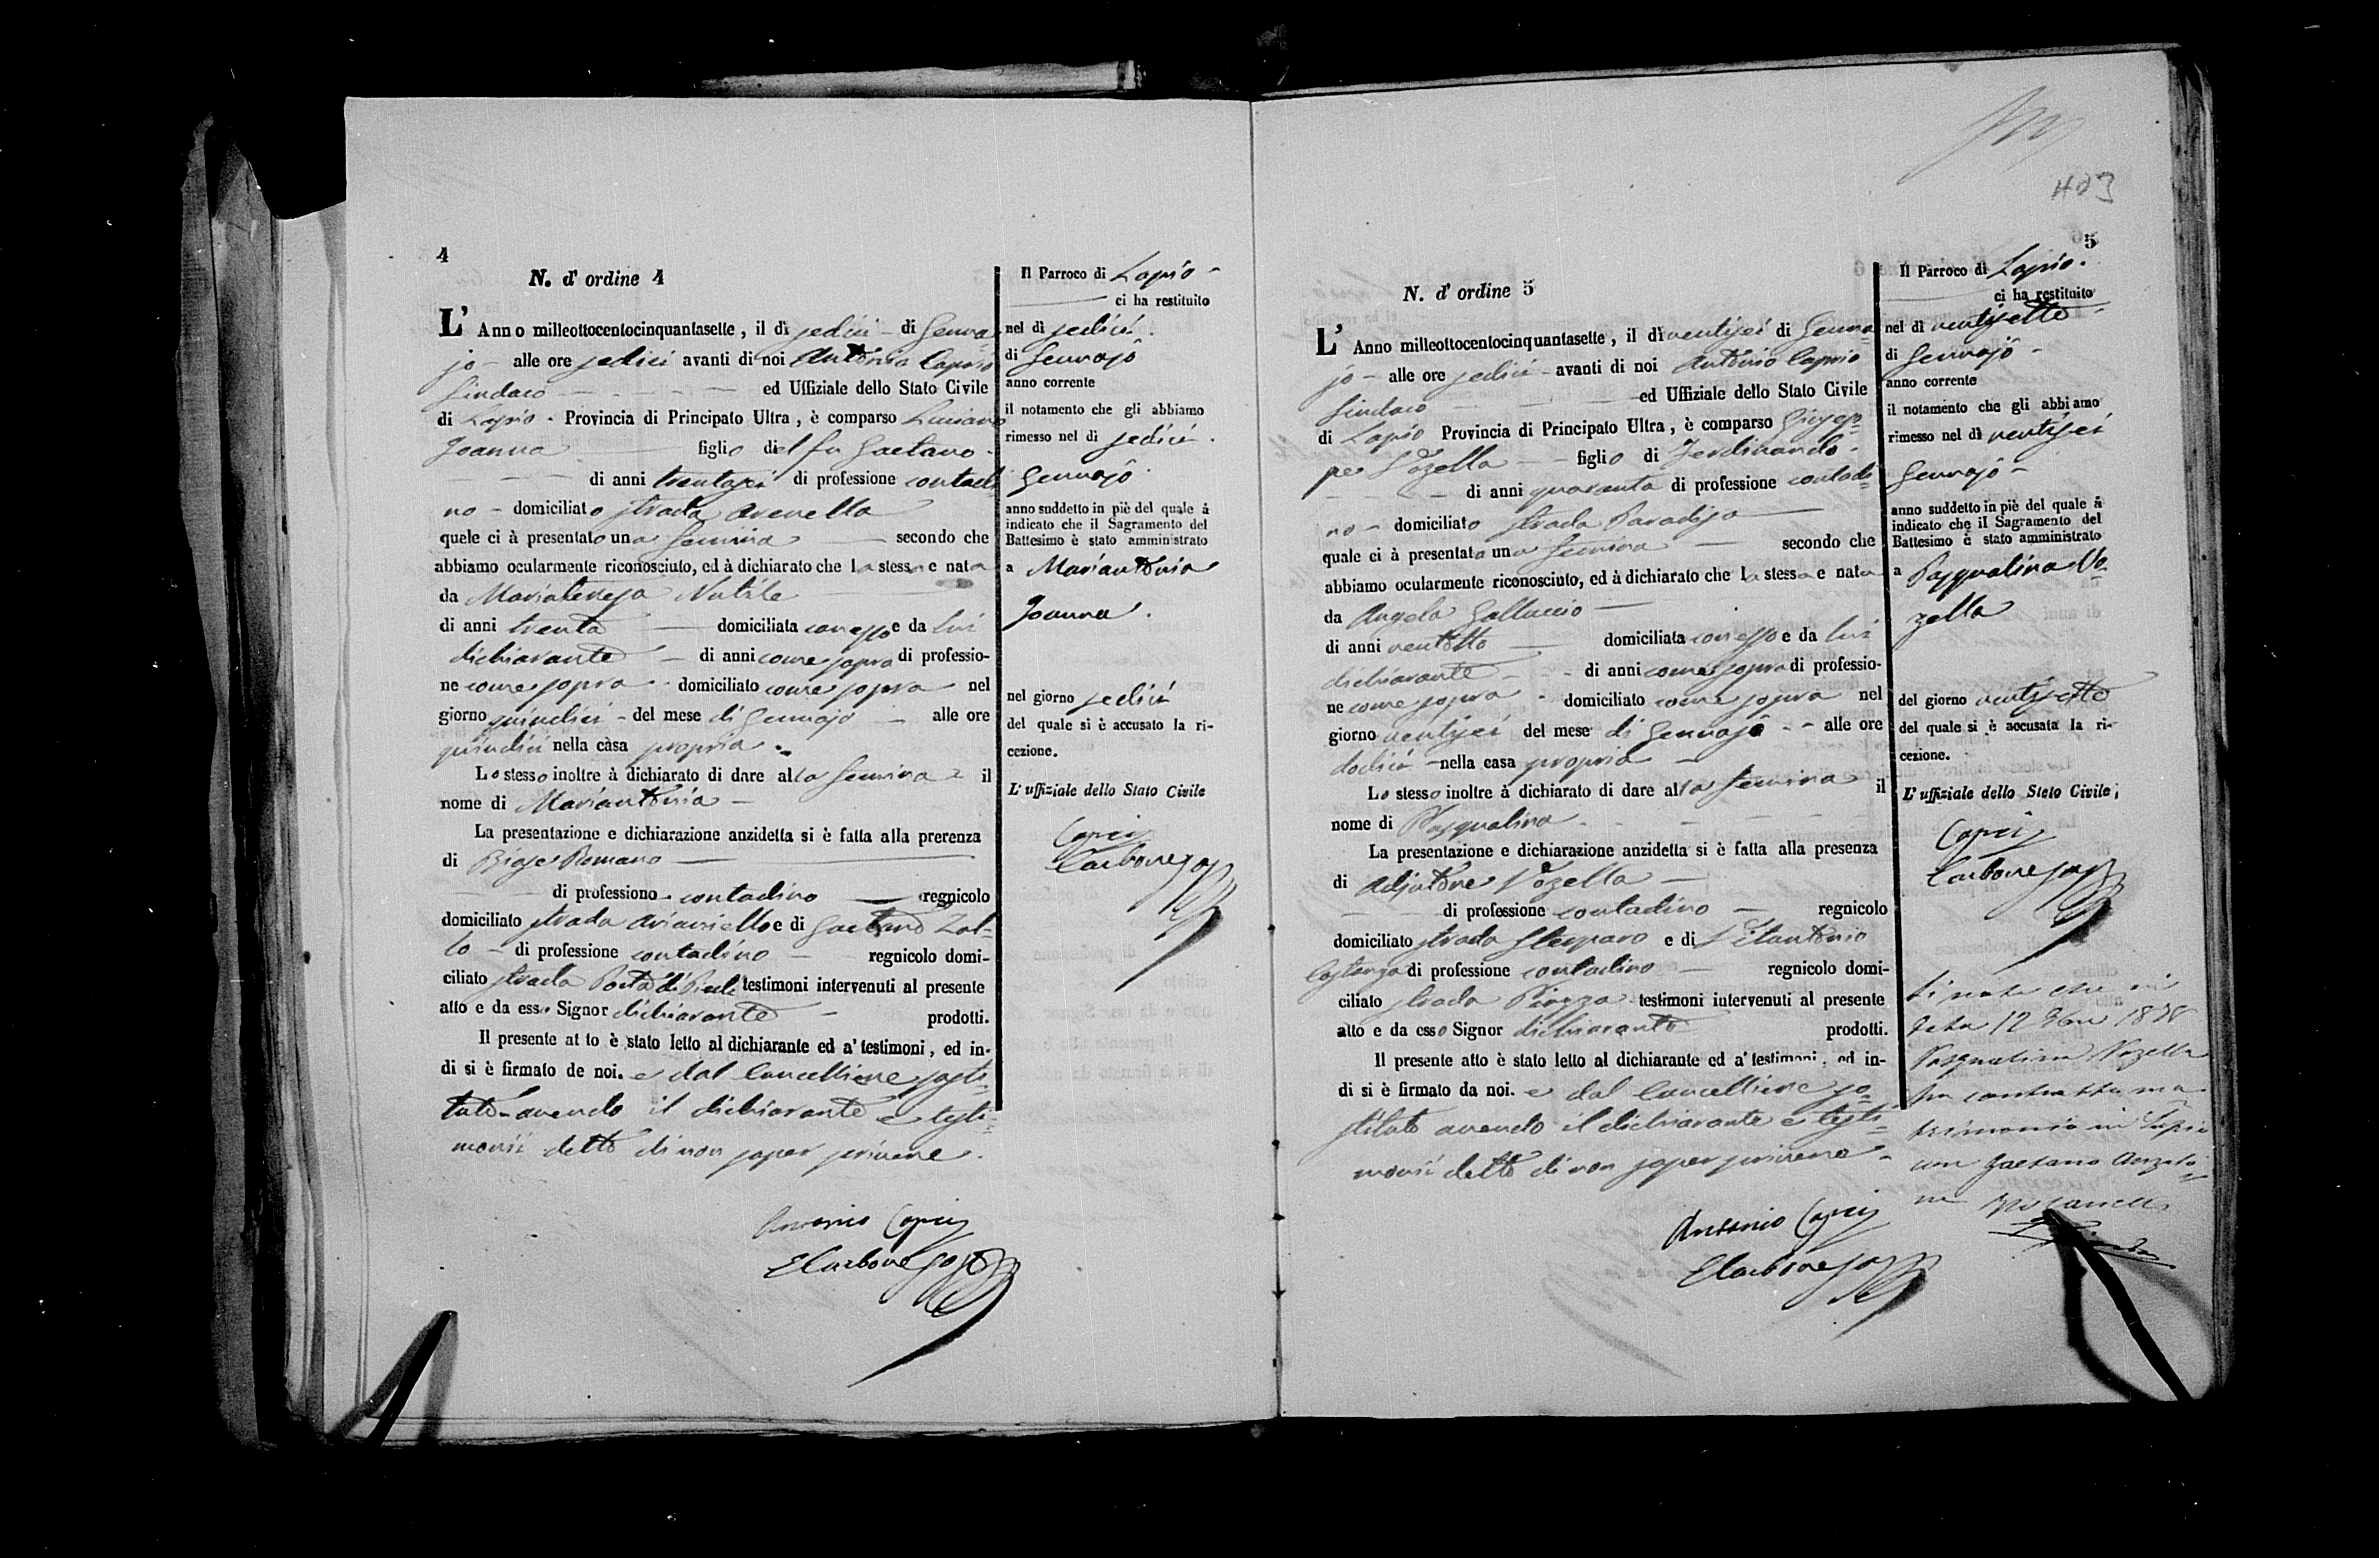 4
N. d' ordine 4
L' Anno milleottocentocinquantasette, il dì sedici di Genna
jo alle ore sedici avanti di noi Antonio Caprio
Sindaco ed Uffiziale dello Stato Civile
di Lapio Provincia di Principato Ultra, è comparso Luciano
Joanna figlio del fu Gaetano
di anni trentasei di professione contadi
no domiciliato strada Arenella
quele ci à presentato una femina secondo che
abbiamo ocularmente riconosciuto, ed à dichiarato che la stessa e nata
da Mariateresa Natale
di anni trenta domiciliata con esso e da lui
dichiarante di anni come sopra di professio-
ne come sopra domiciliato come sopra nel
giorno quindici del mese di Gennajo alle ore
quindici nella càsa propria
Lo stesso inoltre à dichiarato di dare alla femina il
nome di Mariantonia
La presentazione e dichiarazione anzidetta si è fatta alla prerenza
di Biase Romano
di professiono contadino regnicolo
domiciliato strada Arianiello e di Gaetano Zol-
lo di professione contadino regnicolo domi-
ciliato strada Porta di testimoni intervenuti al presente
atto e da esso Signor dichiarante prodotti.
Il presente at to è stato letto al dichiarante ed a' testimoni, ed in-
di si è firmato de noi. e dal Cancelliere sosti-
tuto avendo il dichiarante e testi-
monii detto di non saper scrivere.
Antonio Caprio
E Carbone sost
Il Parroco di Lapio
ci ha restituito
nel dì sedici
di Gennajo
anno corrente
il notamento che gli abbiamo
rimesso nel dì sedici
Gennajo
anno suddetto in piè del quale à
indicato che il Sagramento del
Battesimo è stato amministrato
a Mariantonia
Joanna
nel giorno sedici
del quale si è accusato la ri-
cezione.
L' uffiziale dello Stato Civile
Caprio
Carbone sos
403
5
N. d' ordine 5
L' Anno milleottocentocinquantasette, il dì ventisei di Genna
jo alle ore sedici avanti di noi Antonio Caprio
Sindaco ed Uffiziale dello Stato Civile
di Lapio Provincia di Principato Ultra, è comparso Giusep-
pe Vozella figlio di Ferdinando
di anni quaranta di professione contadi-
no domiciliato strada Paradiso
quale ci à presentata una femina secondo che
abbiamo ocularmente riconosciuto, ed à dichiarato che la stessa e nata
da Angela Galluccio
di anni ventotto domiciliata con esso e da lui
dichiarante di anni come sopra di professio-
ne come sopra domiciliato come sopra nel
giorno ventisei del mese di Gennajo alle ore
dodici nella casa propria
Lo stesso inoltre à dichiarato di dare alla femina il
nome di Pasqualina
La presentazione e dichiarazione anzidetta si è fatta alla presenza
di Adjutore Vozella
di professione contadino regnicolo
domiciliato strada e di Vitantonio
Costanza di professione contadino regnicolo domi-
ciliato strada Piazza testimoni intervenuti al presente
atto e da esso Signor dichiarante prodotti.
Il presente atto è stato letto al dichiarante ed a' testimoni, ed in-
di si è firmato da noi. e dal Cancelliere so-
stituto avendo il dichiarante e testi-
monii detto di non saper scrivere
Antonio Caprio
E Carbone sos
Il Parroco di Lapio.
ci ha restituito
nel dì ventisette
di Gennajo
anno corrente
il notamento che gli abbiamo
rimesso nel dì ventisei
Gennajo
anno suddetto in piè del quale à
indicato che il Sagramento del
Battesimo è stato amministrato
a Pasqualina Vo-
zella
del giorno ventisette
del quale si è accusata la ri-
cezione.
L' uffiziale dello Stato Civile;
Caprio
Carbone sos
Si nota che in
data 12 1878
Pasqualina Vozella
ha contratto ma
trimonio in Lapio
con Gaetano